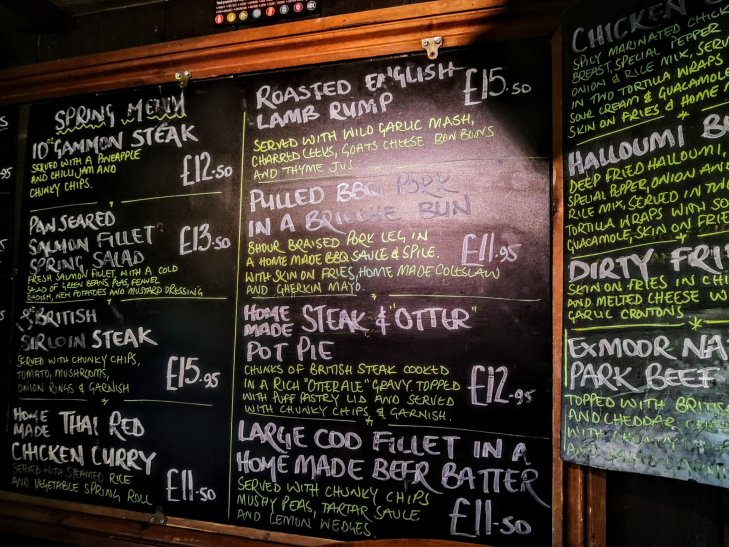 SPRING MENU
10oz GAMMON STEAK
SERVED WITH A PINEAPPLE
AND CHILLI JAM AND
CHUNKY CHIPS.
£12.50
PAN SEARED
SALMON FILLET
SPRING SALAD
£13.50
FRESH SALMON FILLET, WITH A COLD
SALAD OF GREEN BEANS, PEAS, FENNEL
RADISH, NEW POTATOES AND MUSTARD DRESSING
BRITISH
SIRLOIN STEAK
SERVED WITH CHUNKY CHIPS,
TOMATO, MUSHROOMS,
ONION RINGS & GARNISH
£15.95
HOME MADE THAI RED
CHICKEN CURRY
SERVED WITH STEAMED RICE
AND VEGETABLE SPRING ROLL
£11.50
ROASTED ENGLISH
LAMB RUMP
£15.50
SERVED WITH WILD GARLIC MASH,
CHARRED LEEKS, GOATS CHEESE BON BONS
AND THYME JUS
PULLED BBQ PORK
IN A BRIOCHE BUN
8HOUR BRAISED PORK LEG IN
A HOME MADE BBQ SAUCE & SPICE.
WITH SKIN ON FRIES, HOME MADE COLESLAW
AND GHERKIN MAYO.
£11.95
HOME MADE STEAK & "OTTER"
POT PIE
CHUNKS OF BRITISH STEAK COOKED
IN A RICH "OTTERALE" GRAVY. TOPPED
WITH PUFF PASTRY LID AND SERVED
WITH CHUNKY CHIPS, & GARNISH.
£12.95
LARGE COD FILLET IN A
HOME MADE BEER BATTER
SERVED WITH CHUNKY CHIPS
MUSHY PEAS, TARTAR SAUCE
AND LEMON WEDGES.
£11.50
CHICKEN
SPICY MARINATED CHICK
BREAST, SPECIAL PEPPER
ONION & RICE MIX, SERV
IN TWO TORTILLA WRAPS
SOUR CREAM & GUACAMOLE
SKIN ON FRIES & HOME M
HALLOUMI B
DEEP FRIED HALLOUMI,
SPECIAL PEPPER, ONION AND
RICE MIX, SERVED IN TW
TORTILLA WRAPS WITH SO
GUACAMOLE, SKIN ON FRIE
DIRTY FRI
SKIN ON FRIES IN CHI
AND MELTED CHEESE W
GARLIC CROUTONS
EXMOOR NA
PARK BEEF
TOPPED WITH BRITIS
AND CHEDDAR
WITH CHUNKY